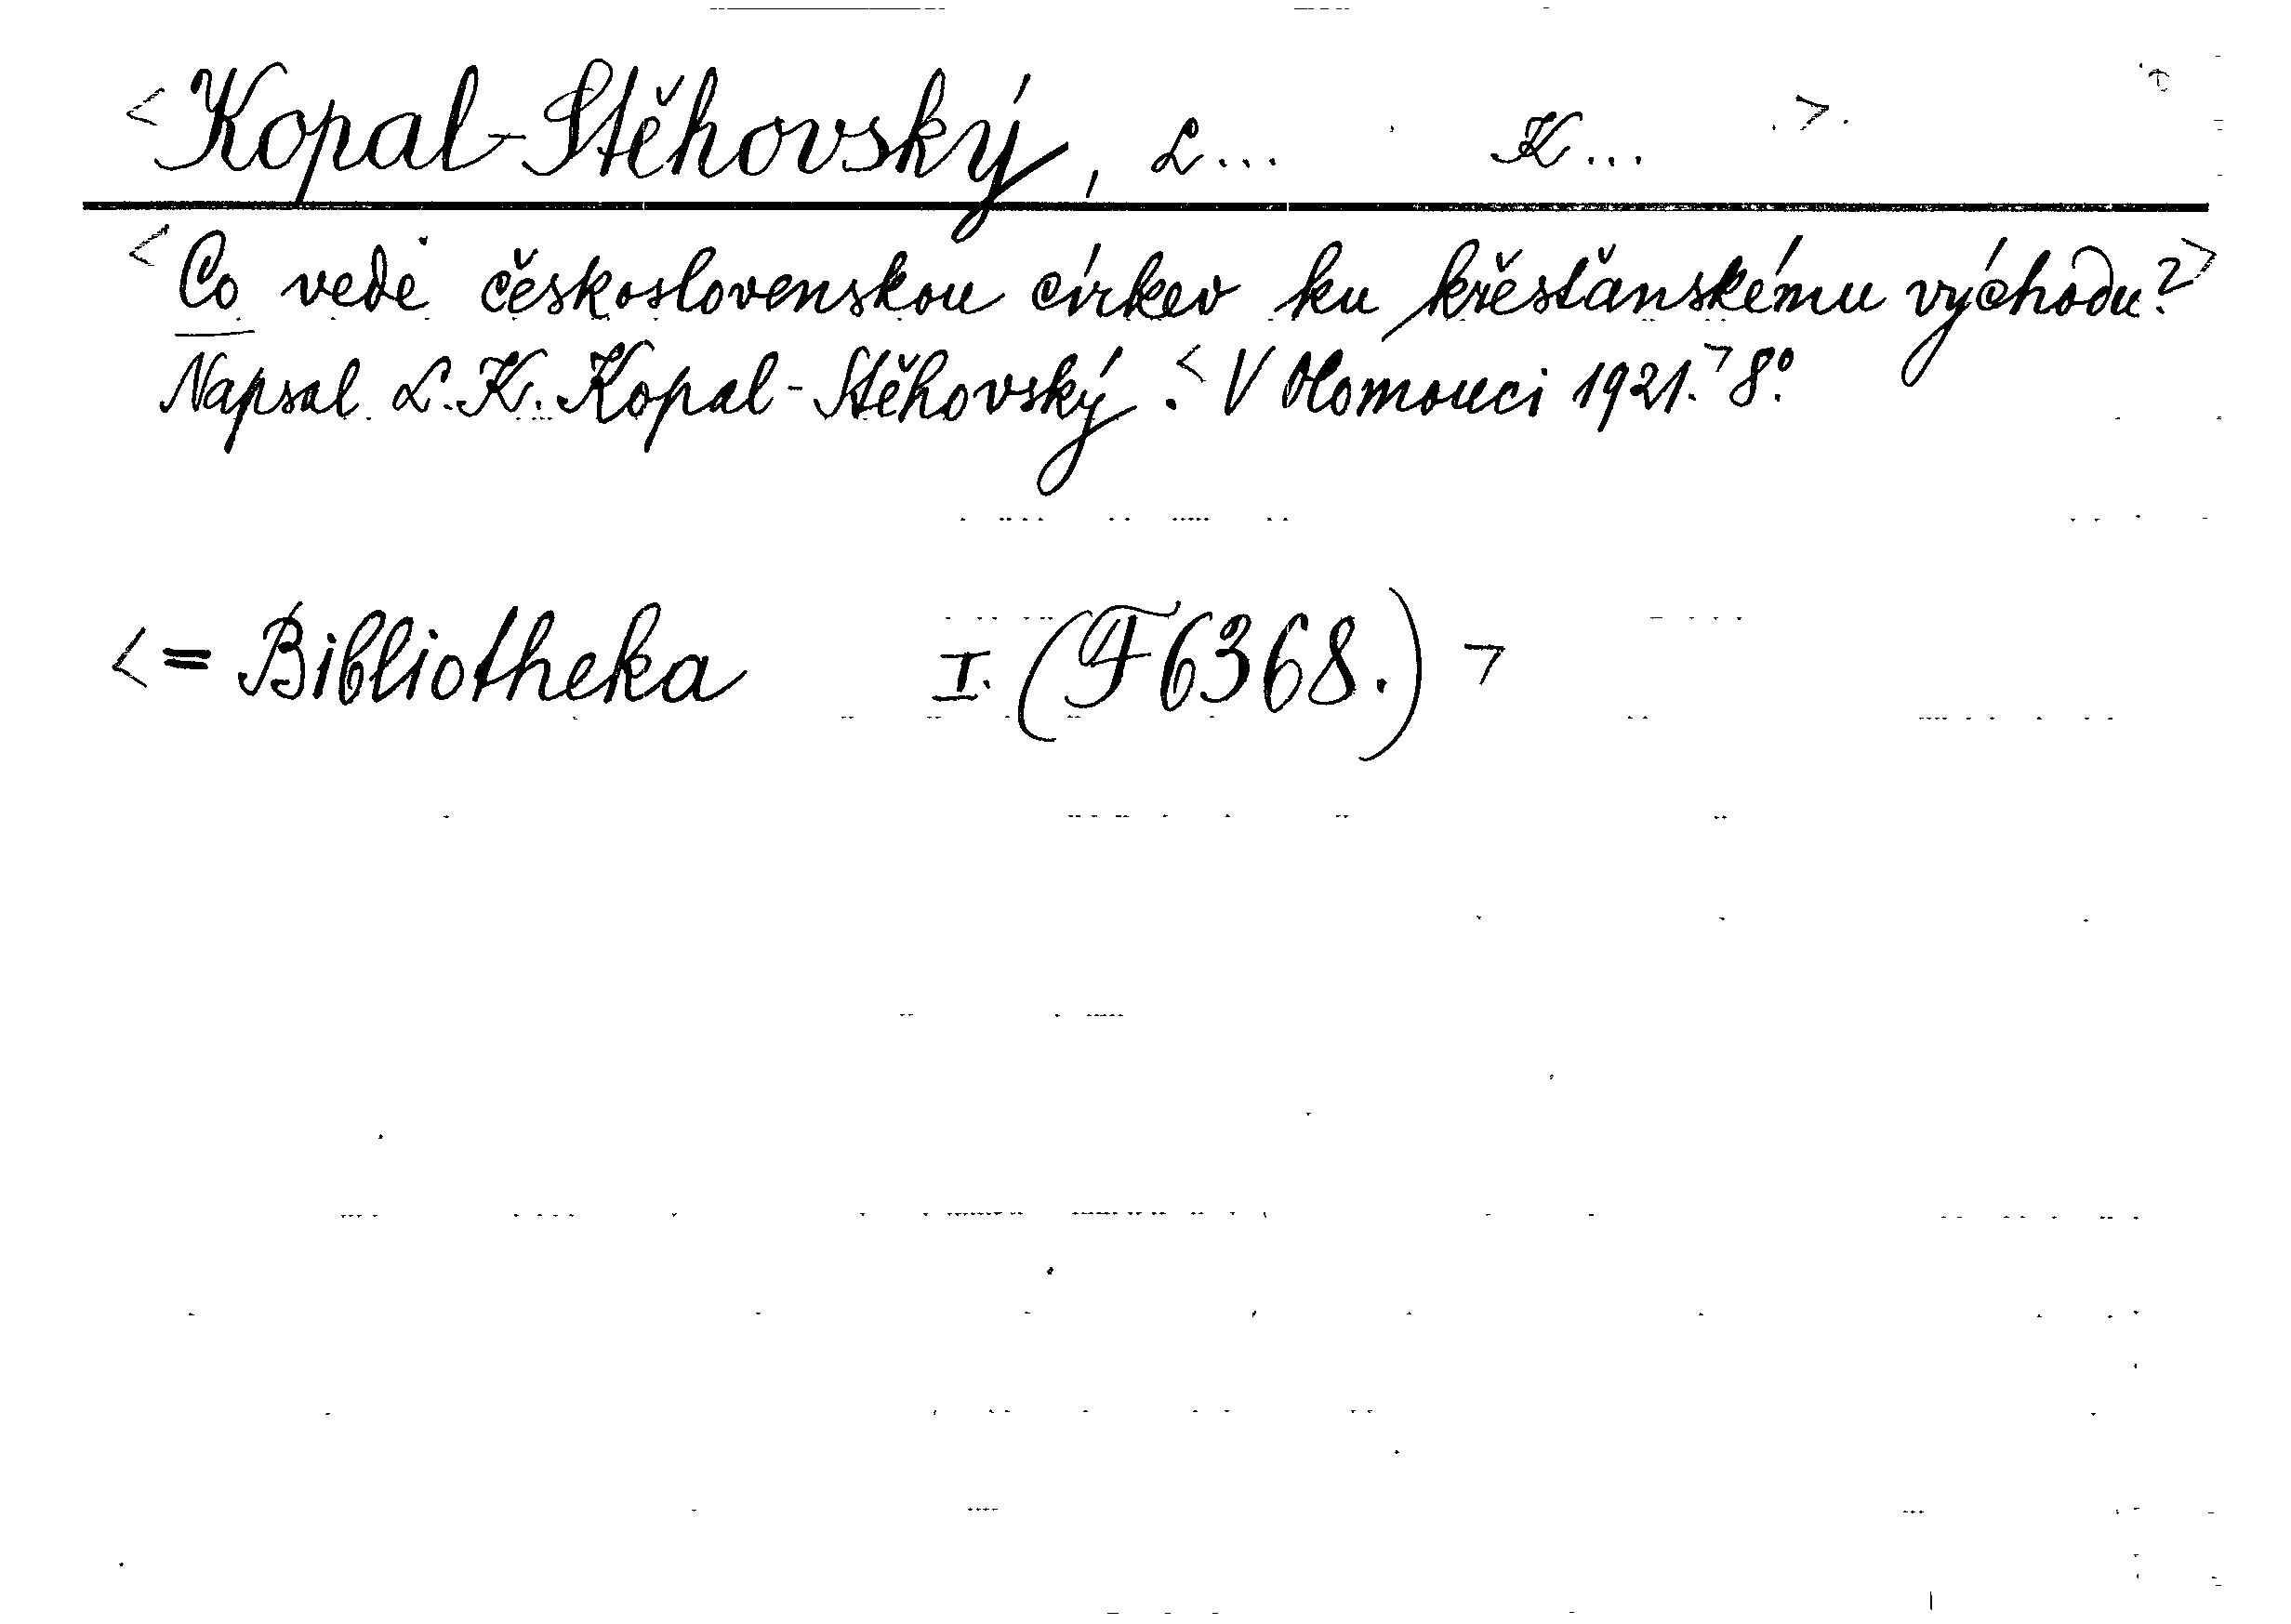 <Kopal-Stěhovský, L... K...>.
<Co vede československou církev ku křesťanskému východu?>
Napsal L. K. Kopal-Stěhovský. <V Olomouci 1921.> 8°.
<= Bibliotheka I. (F6368.)>